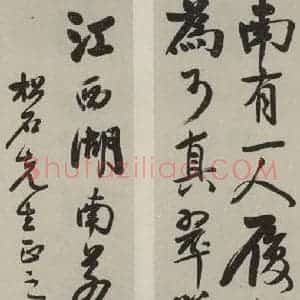 南有一人履
為可真翠
江西湖南等
松石先生正之
Shufaziliao.com